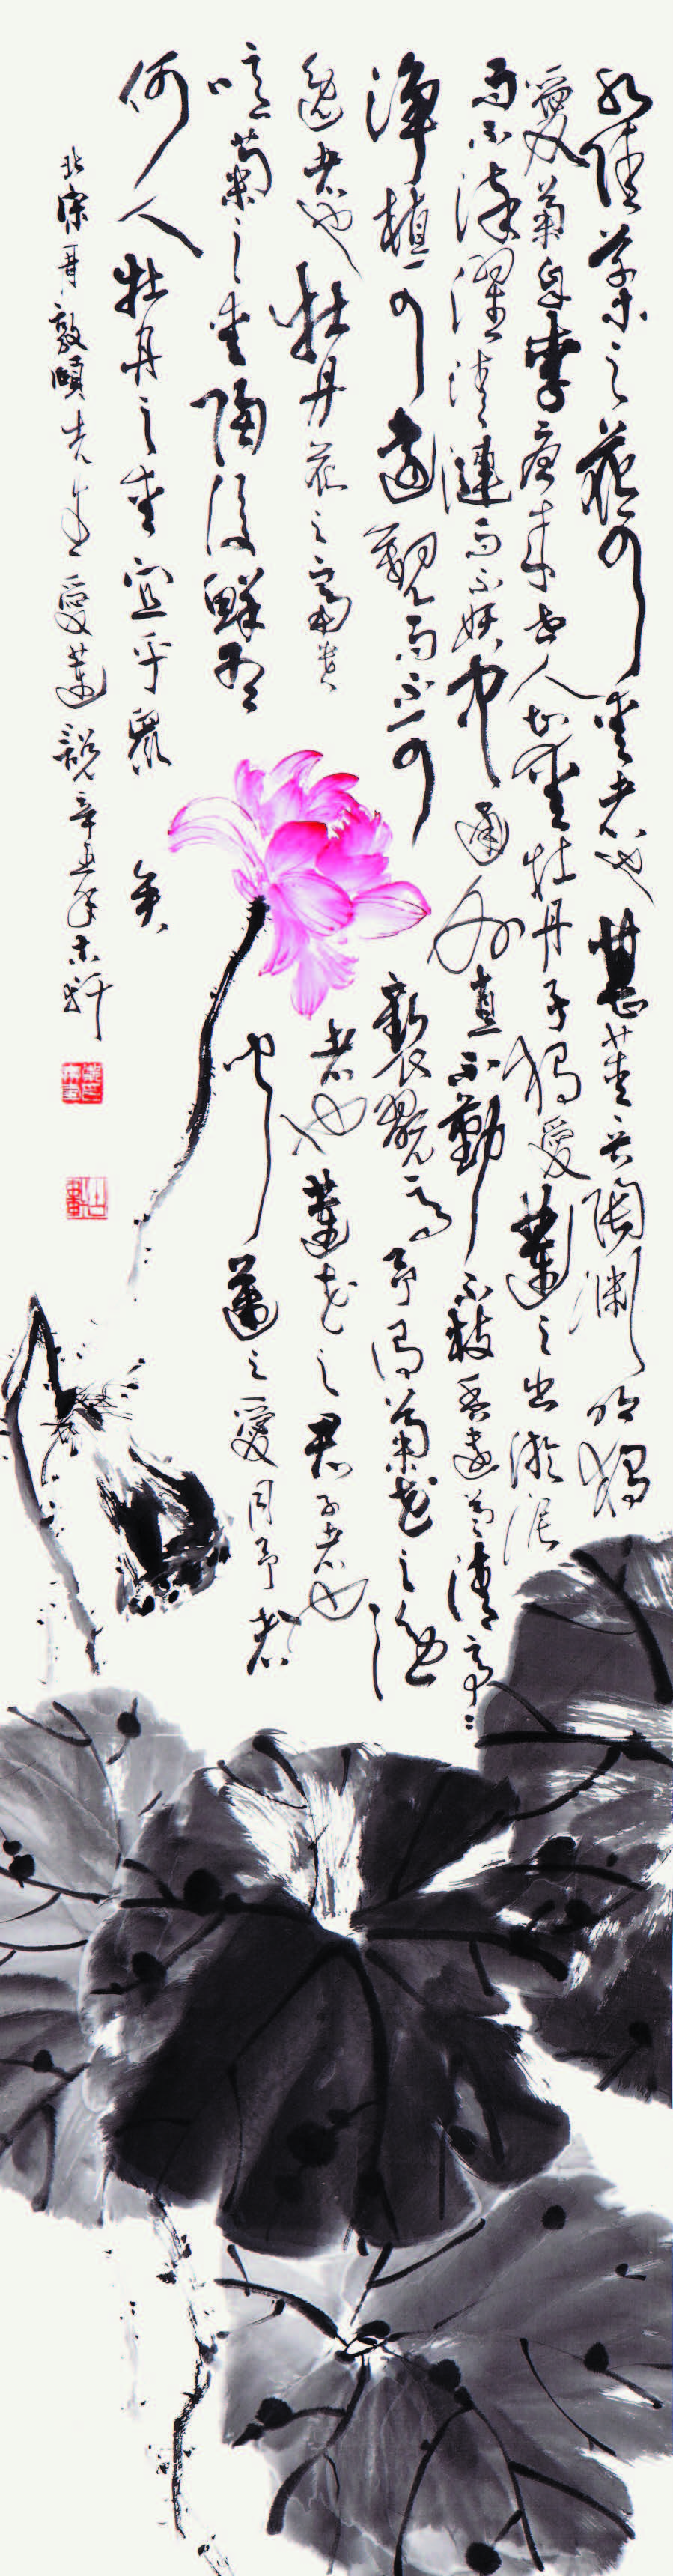 水陸草木之花可愛者也甚蕃晉陶淵明獨
愛菊自李唐来世人甚愛牡丹予獨愛蓮之出淤泥
而不染濯清漣而不妖中通外直不蔓不枝香遠益清亭亭
淨植可遠觀而不可褻翫焉予謂菊花之隐
逸者也牡丹花之富貴者也蓮花之君子者也
噫菊之愛陶後鮮有聞蓮之愛同予者
何人牡丹之愛宜乎眾矣
北宋周敦頤先生愛蓮說辛丑年軒